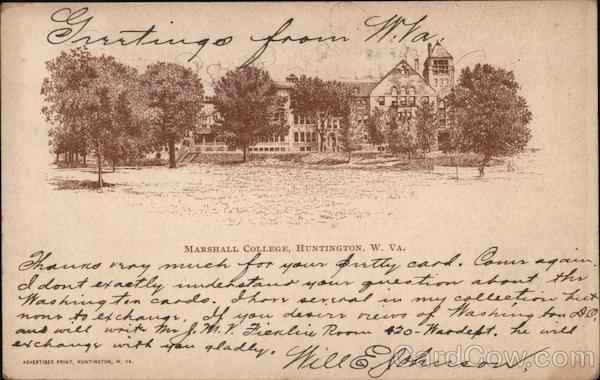 Greetings from W.Va.
MARSHALL COLLEGE, HUNTINGTON, W. VA.
Thanks very much for your pretty card. Come again.
I dont exactly understand your question about the
Washington cards. I have several in my collection but
none to exchange. If you desire views of Washington D.C.
and will write Mr J. M. V. Ficklin Room 420-Wardept. he will
exchange with you gladly. Will E Johnson.
ADVERTISER PRINT, HUNTINGTON, W. VA.
CardCow.com